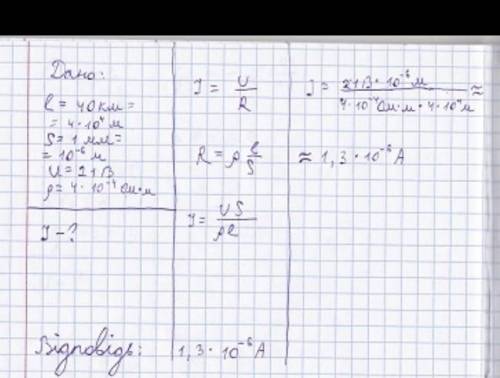 Дано:
l = 40 км =
= 4·10⁴ м
S = 1 мм =
= 10⁻⁶ м
U = 21 В
ρ = 4·10⁻⁴ Ом·м
I - ?
I = U/R
R = ρ l/S
I = US/ρl
I = 21 В·10⁻⁶ м / 4·10⁻⁴ Ом·м·4·10⁴ м ≈
≈ 1,3·10⁻⁶ А
Відповідь: 1,3·10⁻⁶ А